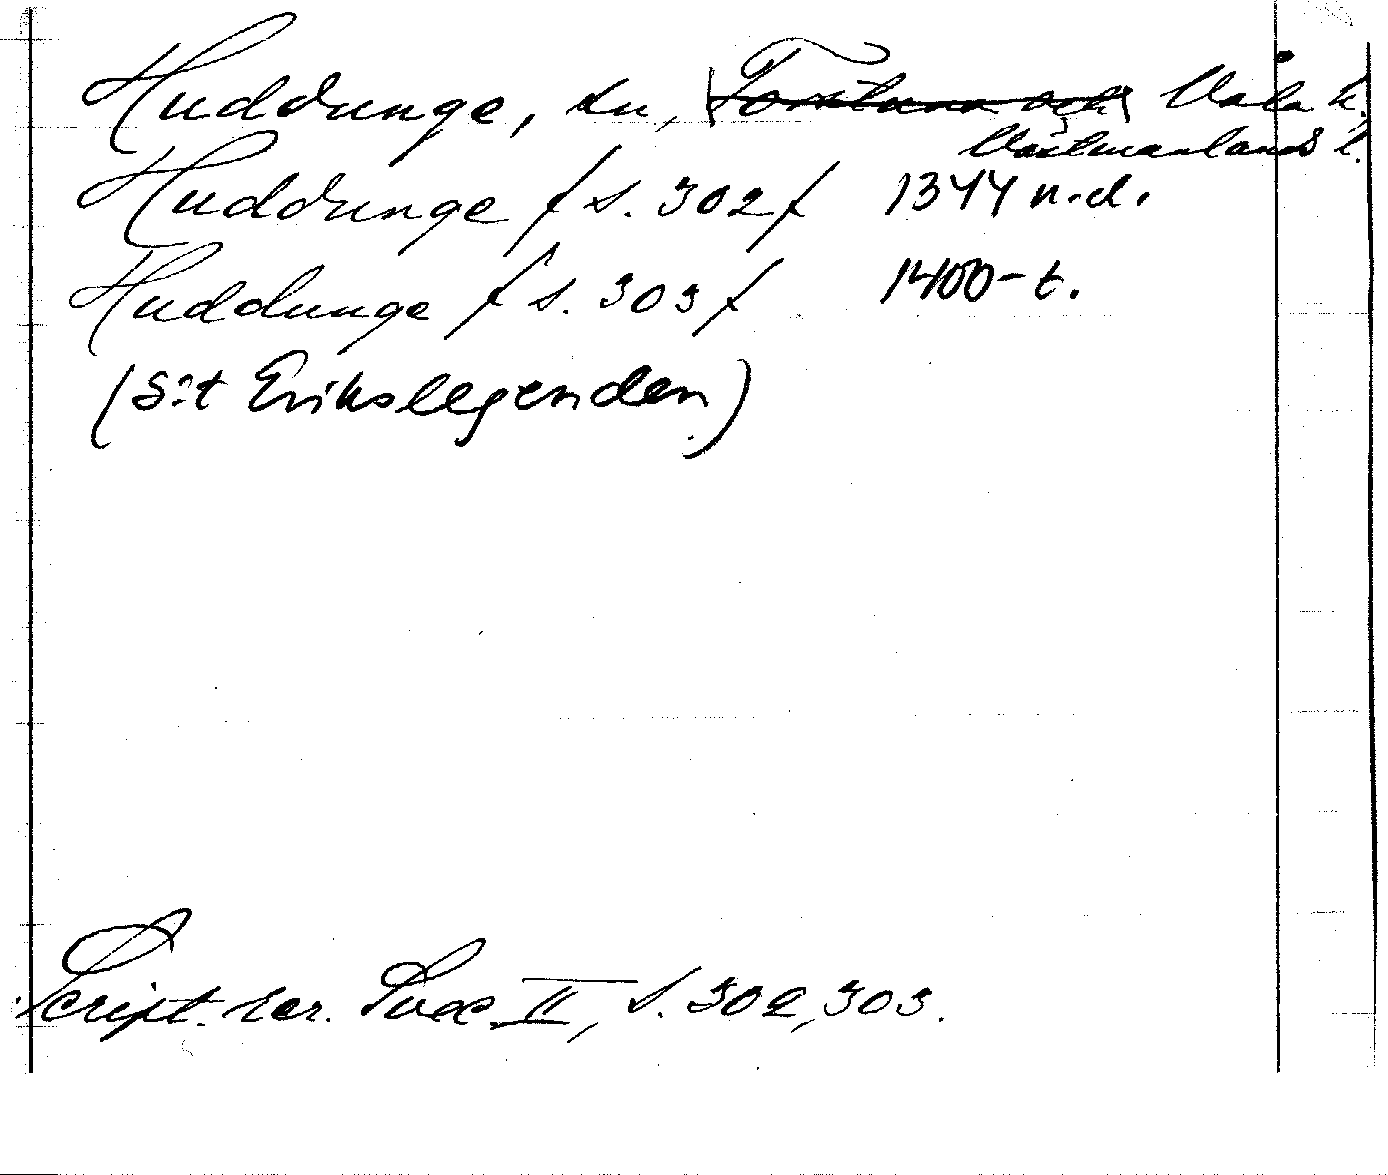 Huddunge, sn, Torstuna och Våla h.
Västmanlands l.
Huddunge / s. 302 / 1344 n.d.
Huddunge / s. 303 / 1400-t.
(S:t Erikslegenden)
Script. rer. Svec. II, s. 302, 303.